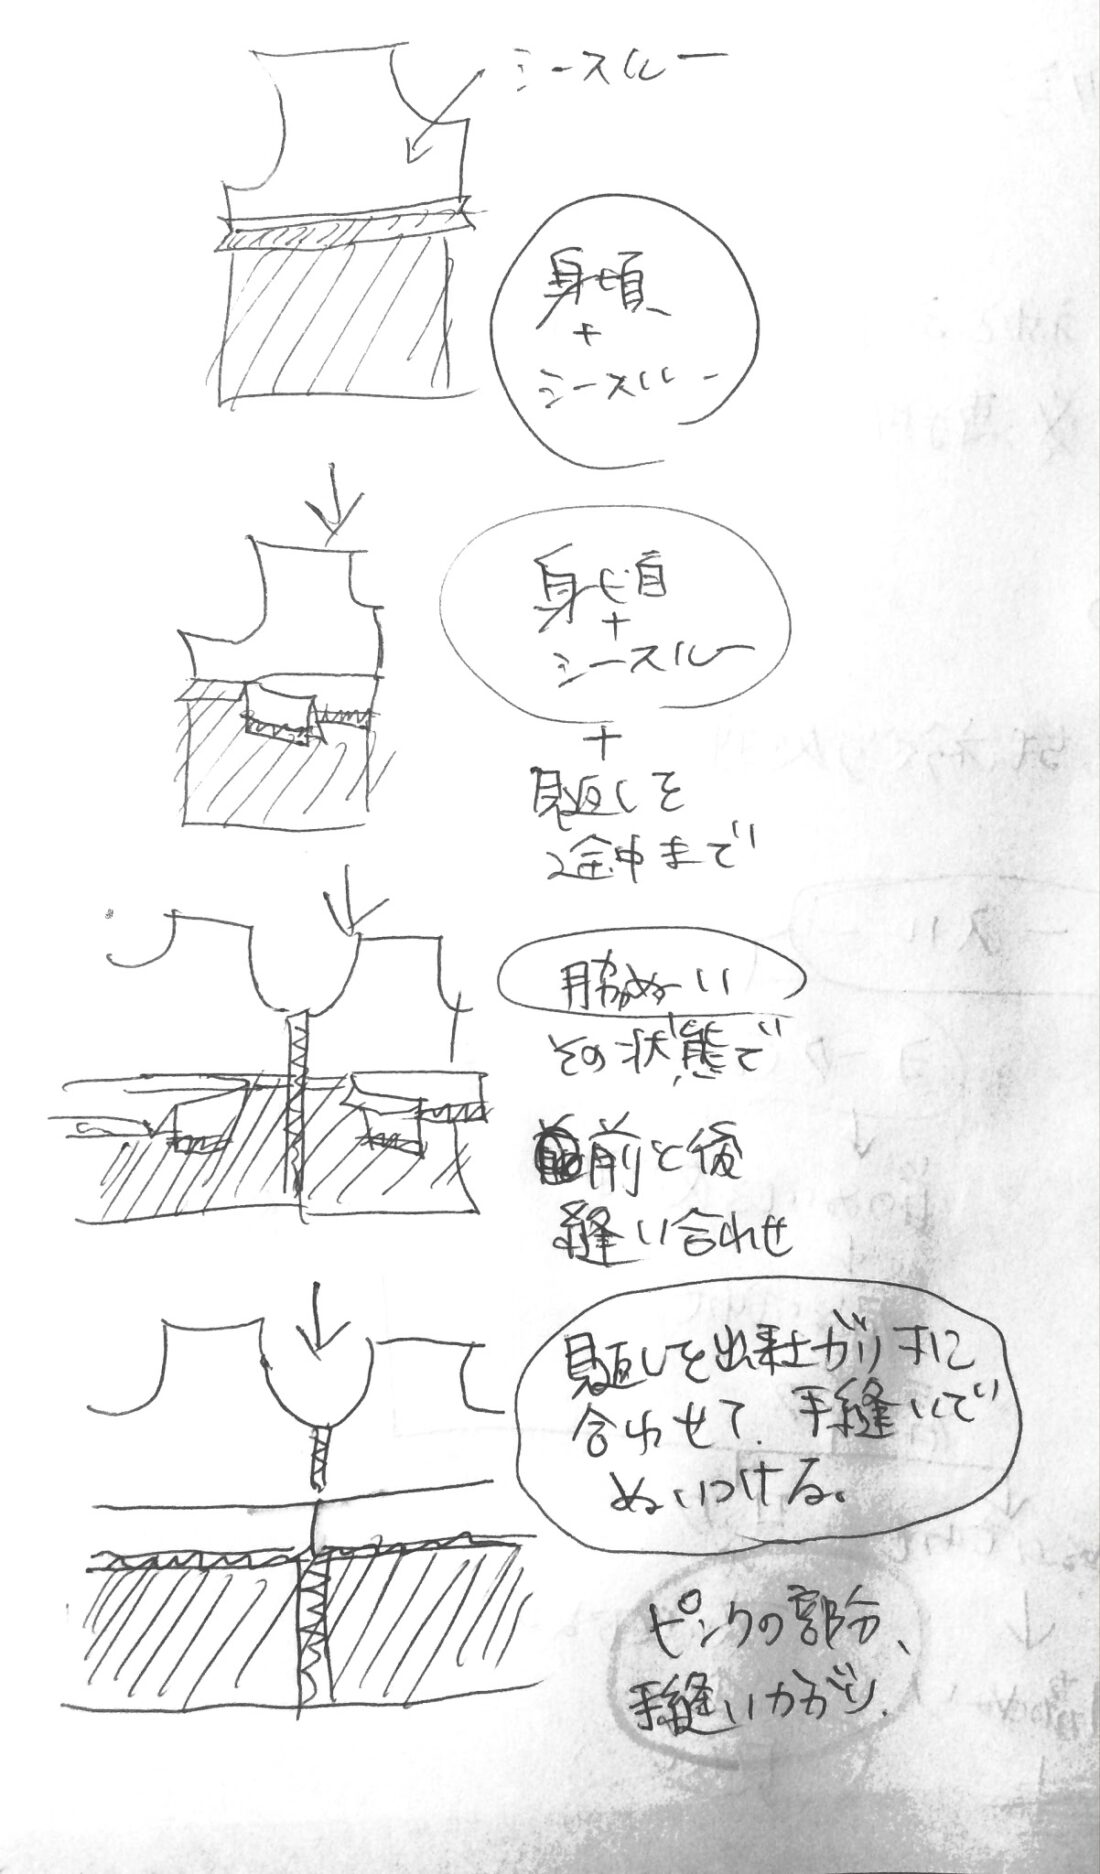 シースルー
身頃
+
シースルー
身頃
+
シースルー
+
見返しを
途中まで
脇ぬい
その状態で
前と後
縫い合わせ
見返しを出来上がりすに
合わせて、手縫いで
ぬいつける。
ピンクの部分、
手縫いかがり.